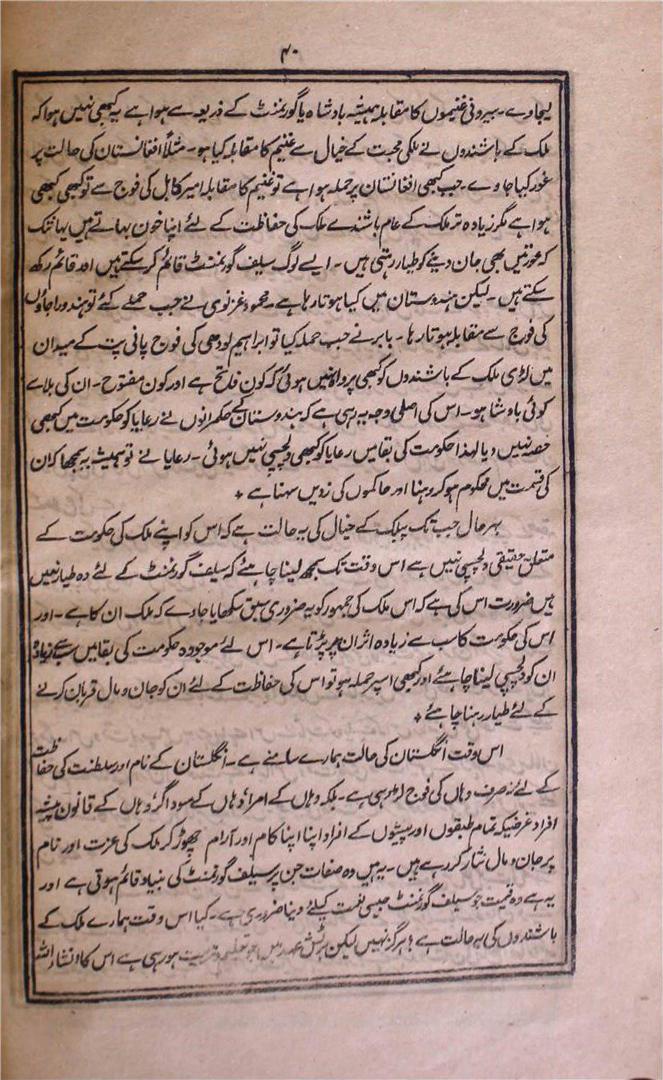 ۴۰
لیجاوے۔ بیرونی غنیموں کا مقابلہ ہمیشہ بادشاہ یا گورنمنٹ کے ذریعہ سے ہوا ہے یہ کبھی نہیں ہوا کہ
ملک کے باشندوں نے ملکی محبت کے خیال سے غنیم کا مقابلہ کیا ہو۔ مثلاً افغانستان کی حالت پر
غور کیا جاوے۔ جب کبھی افغانستان پر حملہ ہوا ہے تو غنیم کا مقابلہ امیر کابل کی فوج سے تو کبھی کبھی
ہوا ہے مگر زیادہ تر ملک کے عام باشندے ملک کی حفاظت کے لئے اپنا خون بہاتے ہیں یہانتک
کہ عورتیں بھی جان دینے کو طیار رہتی ہیں۔ ایسے لوگ سیلف گورنمنٹ قائم کر سکتے ہیں اور قائم رکھ
سکتے ہیں۔ لیکن ہندوستان میں کیا ہوتا رہا ہے۔ محمود غزنوی نے جب حملے کئے تو ہندو راجاؤں
کی فوج سے مقابلہ ہوتا رہا۔ بابر نے جب حملہ کیا تو ابراہیم لودھی کی فوج پانی پت کے میدان
میں لڑی ملک کے باشندوں کو کبھی پرواہ نہیں ہوئی کہ کون فاتح ہے اور کون مفتوح۔ ان کی بلا سے
کوئی بادشا ہو۔ اس کی اصلی وجہ یہ رہی ہے کہ ہندوستان کے حکمرانوں نے رعایا کو حکومت میں کبھی
حصہ نہیں دیا لہذا حکومت کی بقا میں رعایا کو کبھی دلچسپی نہیں ہوئی۔ رعایا نے تو ہمیشہ یہ سمجھا کہ ان
کی قسمت میں محکوم ہو کر رہنا اور حاکموں کی زدیں سہنا ہے *
بہر حال جب تک پبلک کے خیال کی یہ حالت ہے کہ اس کو اپنے ملک کی حکومت کے
متعلق حقیقی دلچسپی نہیں ہے اس وقت تک سمجھ لینا چاہئے کہ سیلف گورنمنٹ کے لئے وہ طیار نہیں
ہیں ضرورت اس کی ہے کہ اس ملک کی جمہور کو یہ ضروری سبق سکھایا جاوے کہ ملک ان کا ہے۔ اور
اس کی حکومت کا سب سے زیادہ اثر ان پر پڑتا ہے۔ اس لئے موجودہ حکومت کی بقا میں سب سے زیادہ
ان کو دلچسپی لینا چاہئے اور کبھی اسپر حملہ ہو تو اس کی حفاظت کے لئے ان کو جان و مال قربان کرنے
کے لئے طیار رہنا چاہئے *
اس وقت انگلستان کی حالت ہمارے سامنے ہے۔ انگلستان کے نام اور سلطنت کی حفاظت
کے لئے نہ صرف وہاں کی فوج لڑ رہی ہے۔ بلکہ وہاں کے امرا وہاں کے سوداگر وہاں کے قانون پیشہ
افراد غرضیکہ تمام طبقوں اور پیشوں کے افراد اپنا اپنا کام اور آرام چھوڑ کر ملک کی عزت اور نام
پر جان و مال نثار کر رہے ہیں۔ یہ ہیں وہ صفات جن پر سیلف گورنمنٹ کی بنیاد قائم ہوتی ہے اور
یہ ہے وہ قیمت جو سیلف گورنمنٹ جیسی نعمت کیلئے دینا ضروری ہے۔ کیا اس وقت ہمارے ملک کے
باشندوں کی یہ حالت ہے؟ ہرگز نہیں لیکن برٹش عہد میں جو تعلیم و تربیت ہو رہی ہے اس کا انشاء اللہ